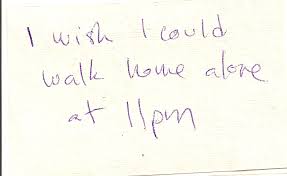 I wish I could
walk home alone
at 11pm